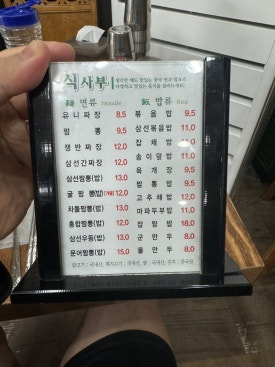 식사부
麵 면류 Noodle
유니짜장 8.5
짬뽕 9.5
쟁반짜장 12.0
삼선간짜장 12.0
삼선짬뽕(밥) 13.0
굴짬뽕(밥) 12.0
차돌짬뽕(밥) 13.0
통합짬뽕(밥) 12.0
삼선우동(밥) 13.0
문어짬뽕(밥) 15.0
飯 밥류 Rice
볶음밥 9.5
삼선볶음밥 11.0
잡채밥 11.0
송이덮밥 11.0
육개장 9.5
짬뽕밥 9.5
고추잡채밥 12.0
마파두부밥 11.0
잡탕밥 18.0
군만두 8.0
물만두 8.0